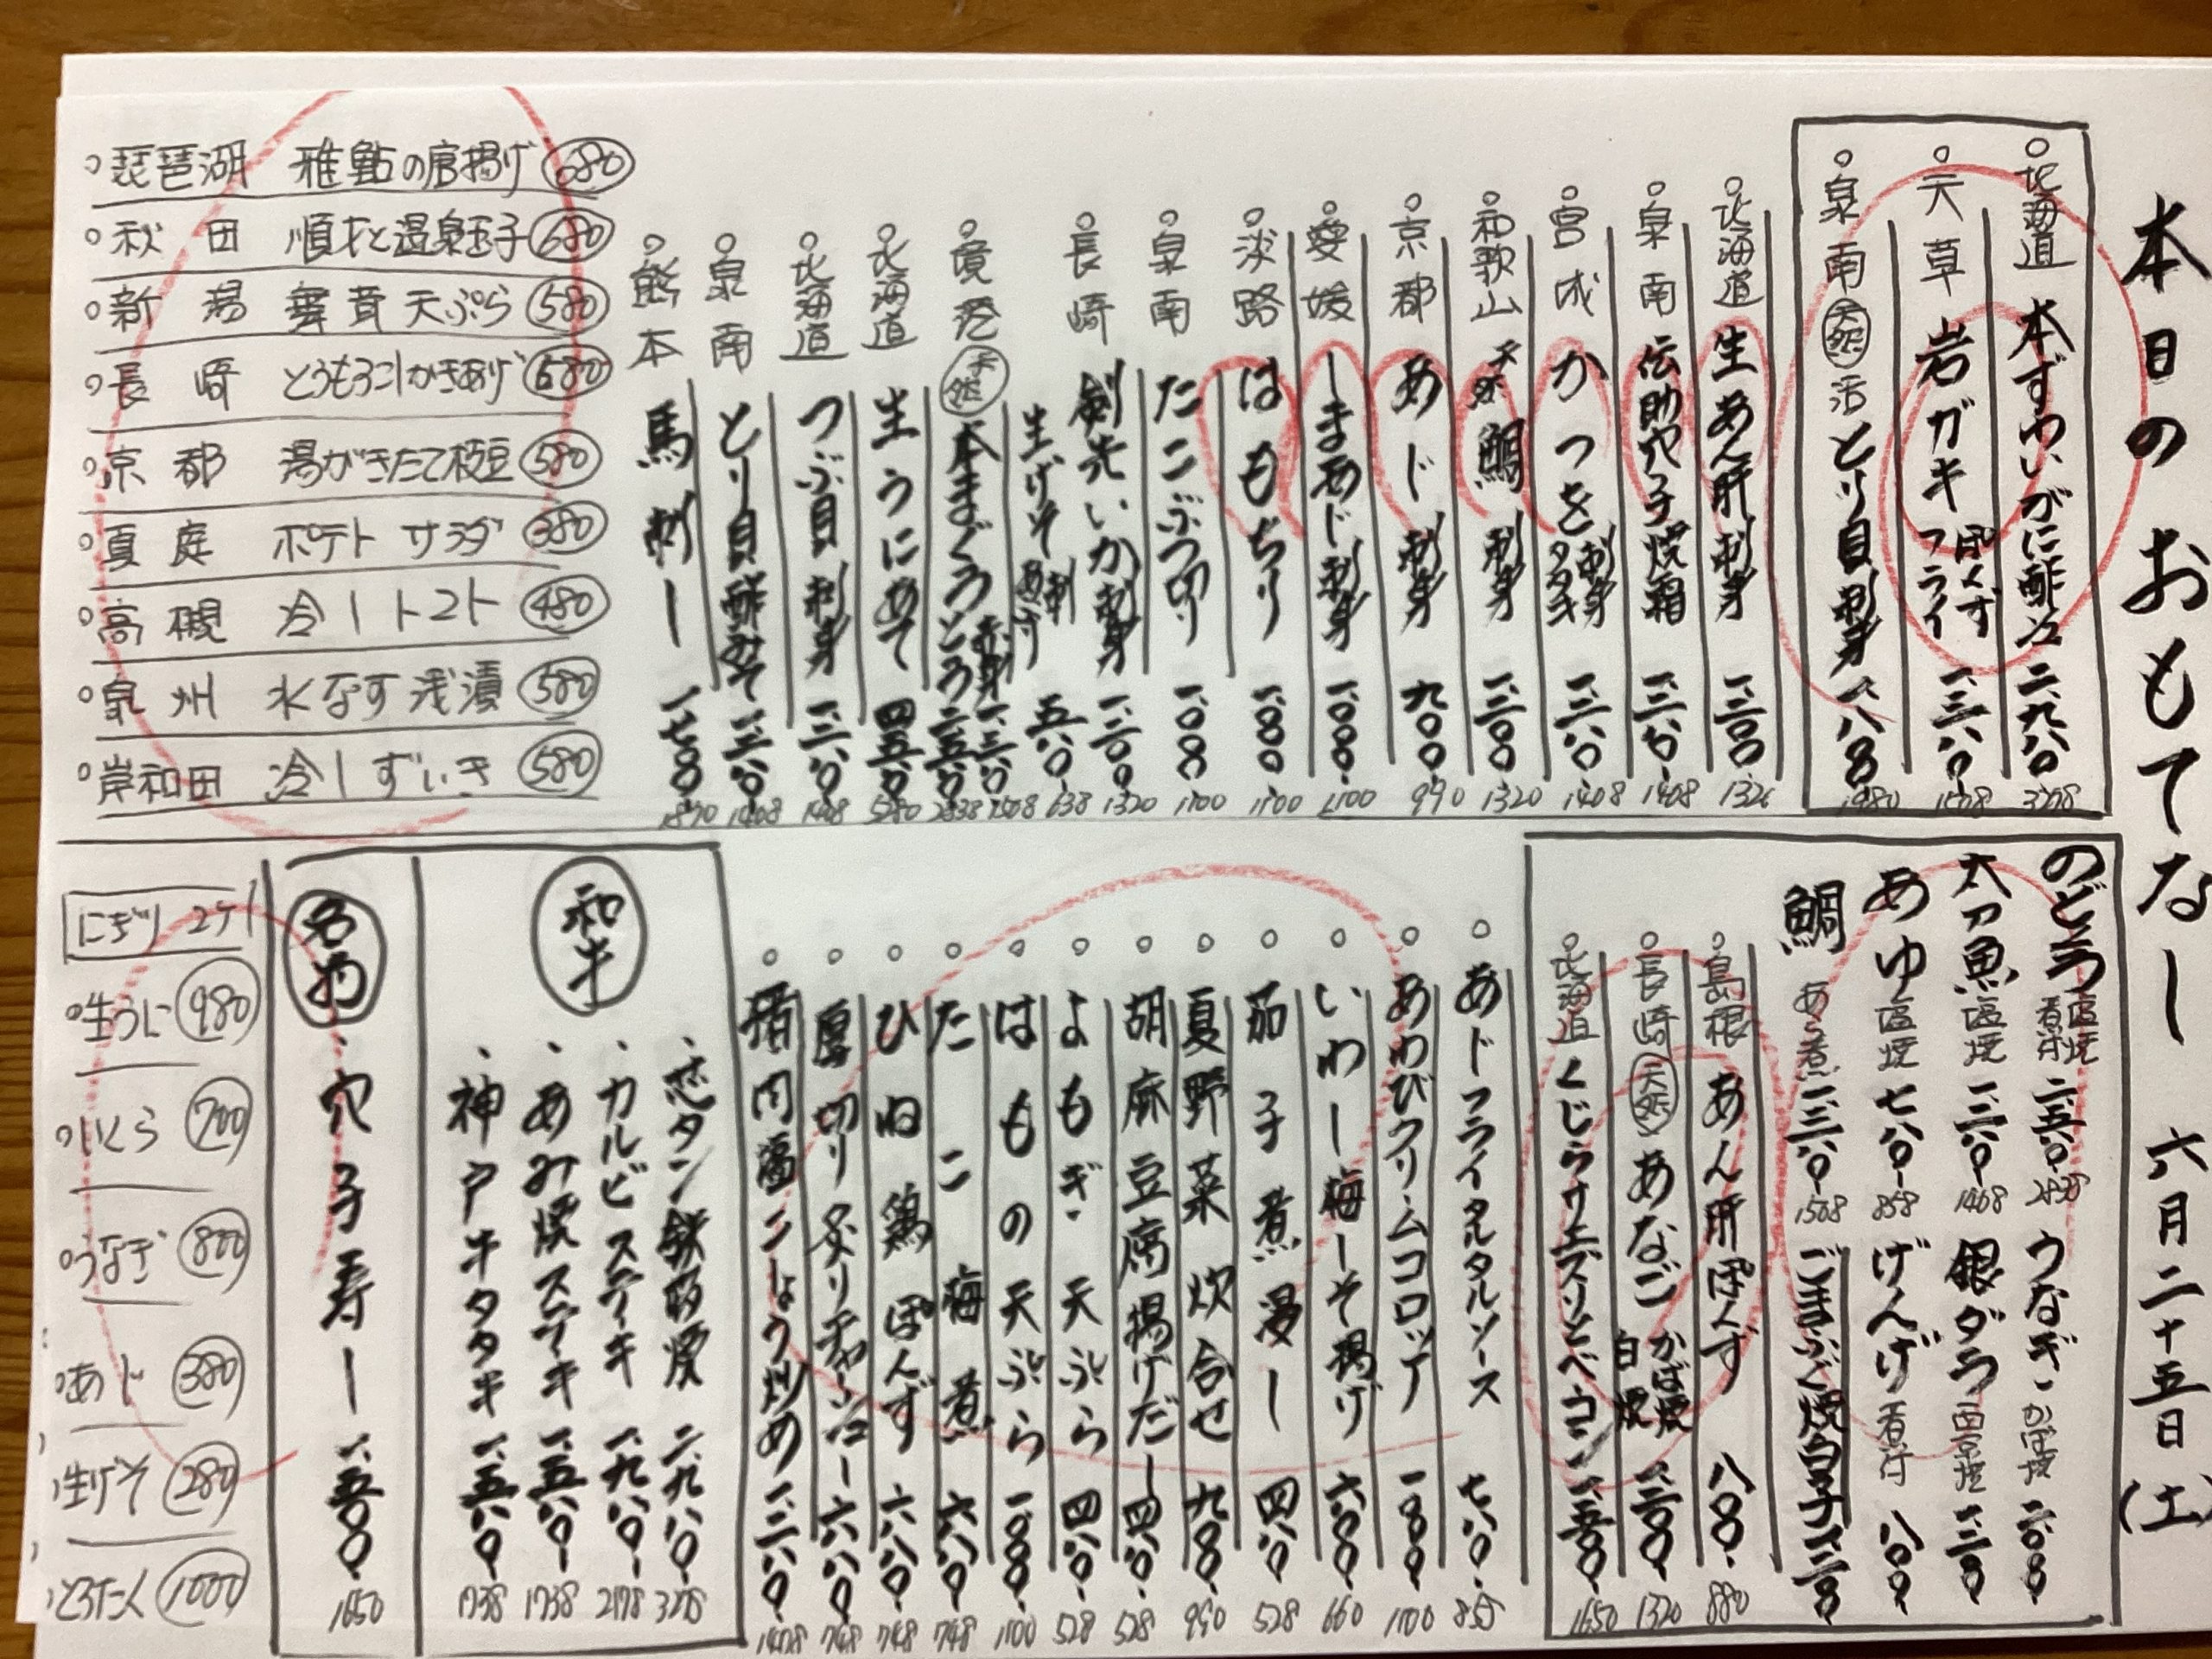 本日のおもてなし 六月二十五日(土)
北海道 本ずわいがに酢 二、九八〇 3278
天草 岩ガキ ぽんず フライ 一、三八〇 1508
泉南 天然 活とり貝刺身 一、八〇〇 1980
北海道 生あん肝刺身 一、二〇〇 1320
泉南 伝助穴子焼霜 一、二八〇 1408
宮城 かつを 刺身 タタキ 一、二八〇 1408
和歌山 天然 鯛 刺身 一、二〇〇 1320
京都 あじ 刺身 九〇〇 990
愛媛 しまあじ刺身 一、〇〇〇 1100
淡路 はもちり 一、〇〇〇 1100
泉南 たこぶつ切り 一、〇〇〇 1100
長崎 剣先いか刺身 一、二〇〇 1320
生げそ 刺 五八〇 638
境港 天然 本まぐろ 赤身 一、三八〇 1508
とろ 二、五八〇 2838
北海道 生うにあて 四、八〇〇 5280
北海道 つぶ貝刺身 一、二八〇 1408
泉南 とり貝酢みそ 一、二八〇 1408
熊本 馬刺し 一、七〇〇 1870
琵琶湖 稚鮎の唐揚げ 680
秋田 順才と温泉玉子 680
新潟 舞茸天ぷら 580
長崎 とうもろこしかきあげ 680
京都 湯がきたて枝豆 580
夏庭 ポテトサラダ 380
高槻 冷しトマト 480
泉州 水なす浅漬 580
岸和田 冷しずいき 580
のどぐろ 塩焼 煮付 二、五八〇 2838
太刀魚 塩焼 一、二八〇 1408
あゆ 塩焼 七八〇 858
鯛 あら煮 一、三八〇 1508
うなぎ かば焼 二、〇〇〇
銀ダラ 西京焼 一、二八〇
げんげ 煮付 八〇〇
ごまふぐ焼白子 一、二八〇
島根 あん肝ぽんず 八〇〇 880
長崎 天然 あなご かば焼 白焼 一、二〇〇 1320
北海道 くじらサエズリとベーコン 一、五〇〇 1650
あじフライタルタルソース 七八〇 858
あわびクリームコロッケ 一、〇〇〇 1100
いわし梅しそ揚げ 六〇〇 660
茄子煮浸し 四八〇 528
夏野菜炊合せ 九〇〇 990
胡麻豆腐揚げだし 四八〇 528
よもぎ天ぷら 四八〇 528
はもの天ぷら 一、〇〇〇 1100
たこ梅煮 六八〇 748
ひね鶏ぽんず 六八〇 748
厚切り炙りチャーシュー 六八〇 748
猪肉塩こしょう炒め 一、二八〇 1408
和牛
芯タン鉄板焼 二、九八〇 3278
カルビステーキ 一、九八〇 2178
あみ焼ステーキ 一、五八〇 1738
神戸牛タタキ 一、五八〇 1738
名物
穴子寿し 一、五〇〇 1650
にぎり 2ケ
生うに 980
いくら 700
うなぎ 800
あじ 380
生げそ 280
とろたく 1000